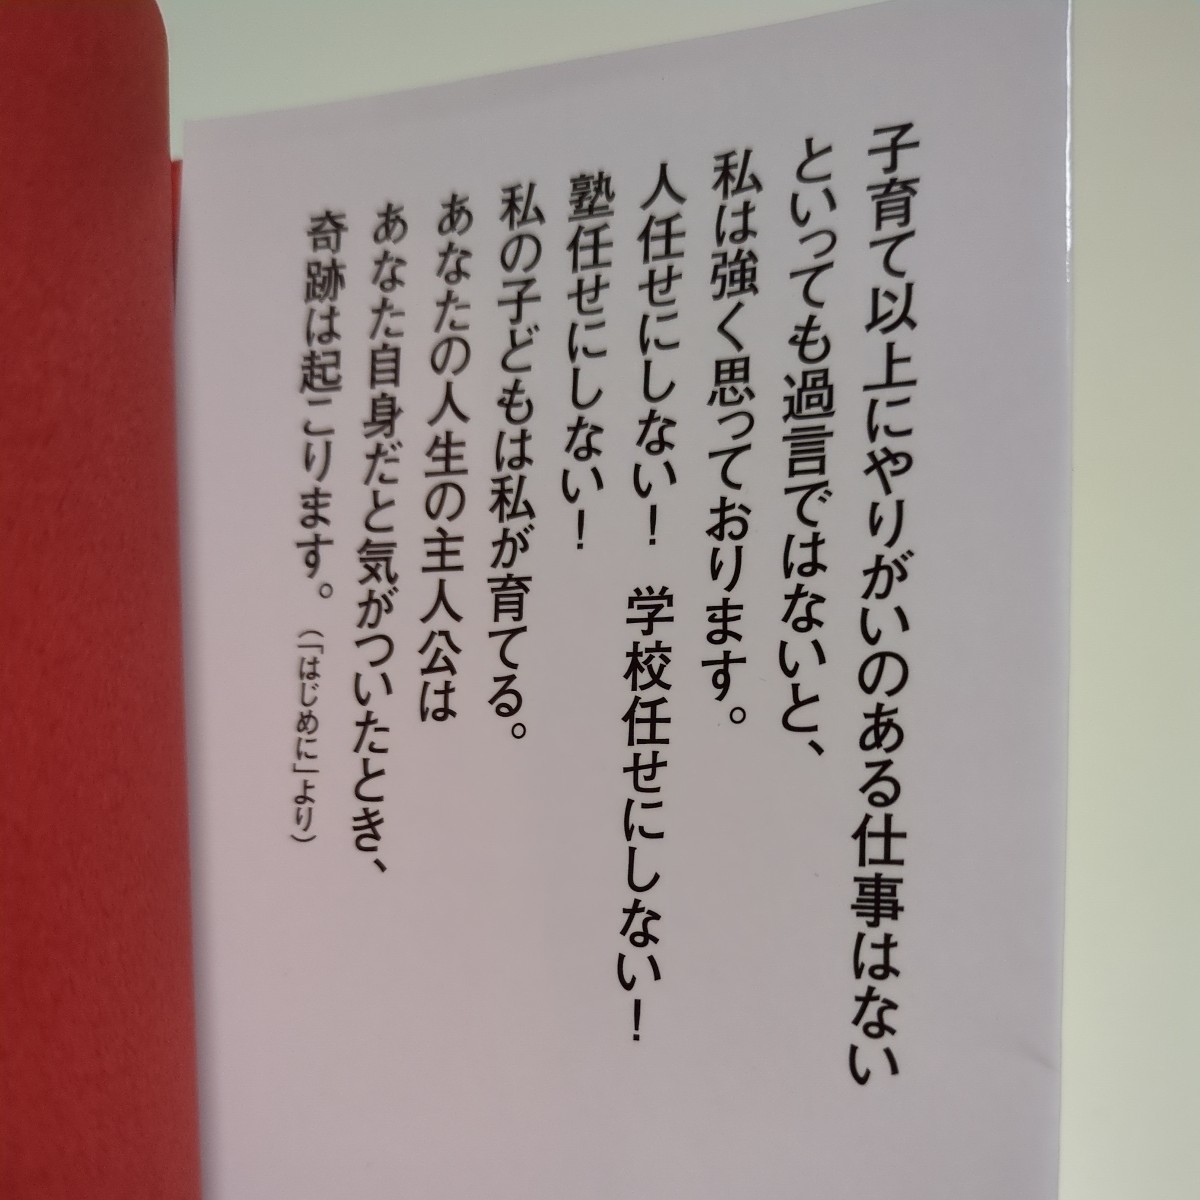 子育て以上にやりがいのある仕事はない
といっても過言ではないと、
私は強く思っております。
人任せにしない！　学校任せにしない！
塾任せにしない！
私の子どもは私が育てる。
あなたの人生の主人公は
あなた自身だと気がついたとき、
奇跡は起こります。（「はじめに」より）